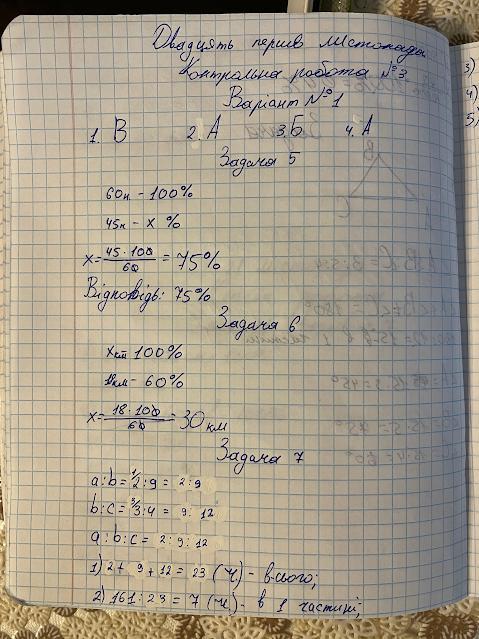 Двадцять перше листопада
Контрольна робота №3
Варіант №1
1. В 2. А 3. Б 4. А
Задача 5
60к - 100%
45к - х %
х = 45 · 100 / 60 = 75%
Відповідь: 75%
Задача 6
х км 100%
18км - 60%
х = 18 · 100 / 60 = 30 км
Задача 7
a:b = 1/2:9 = 2:9
b:c = 3/3:4 = 9:12
a:b:c = 2:9:12
1) 2 + 9 + 12 = 23 (ч) - всього;
2) 161 : 23 = 7 (ч) - в 1 частині;
3)
4)
5)